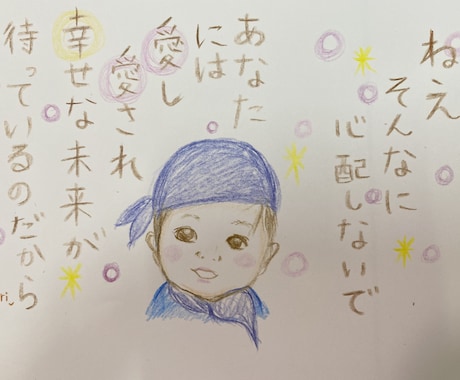 ねえ
そんなに
心配しないで
あなた
には
愛し
愛され
幸せな未来が
待っているのだから
ri